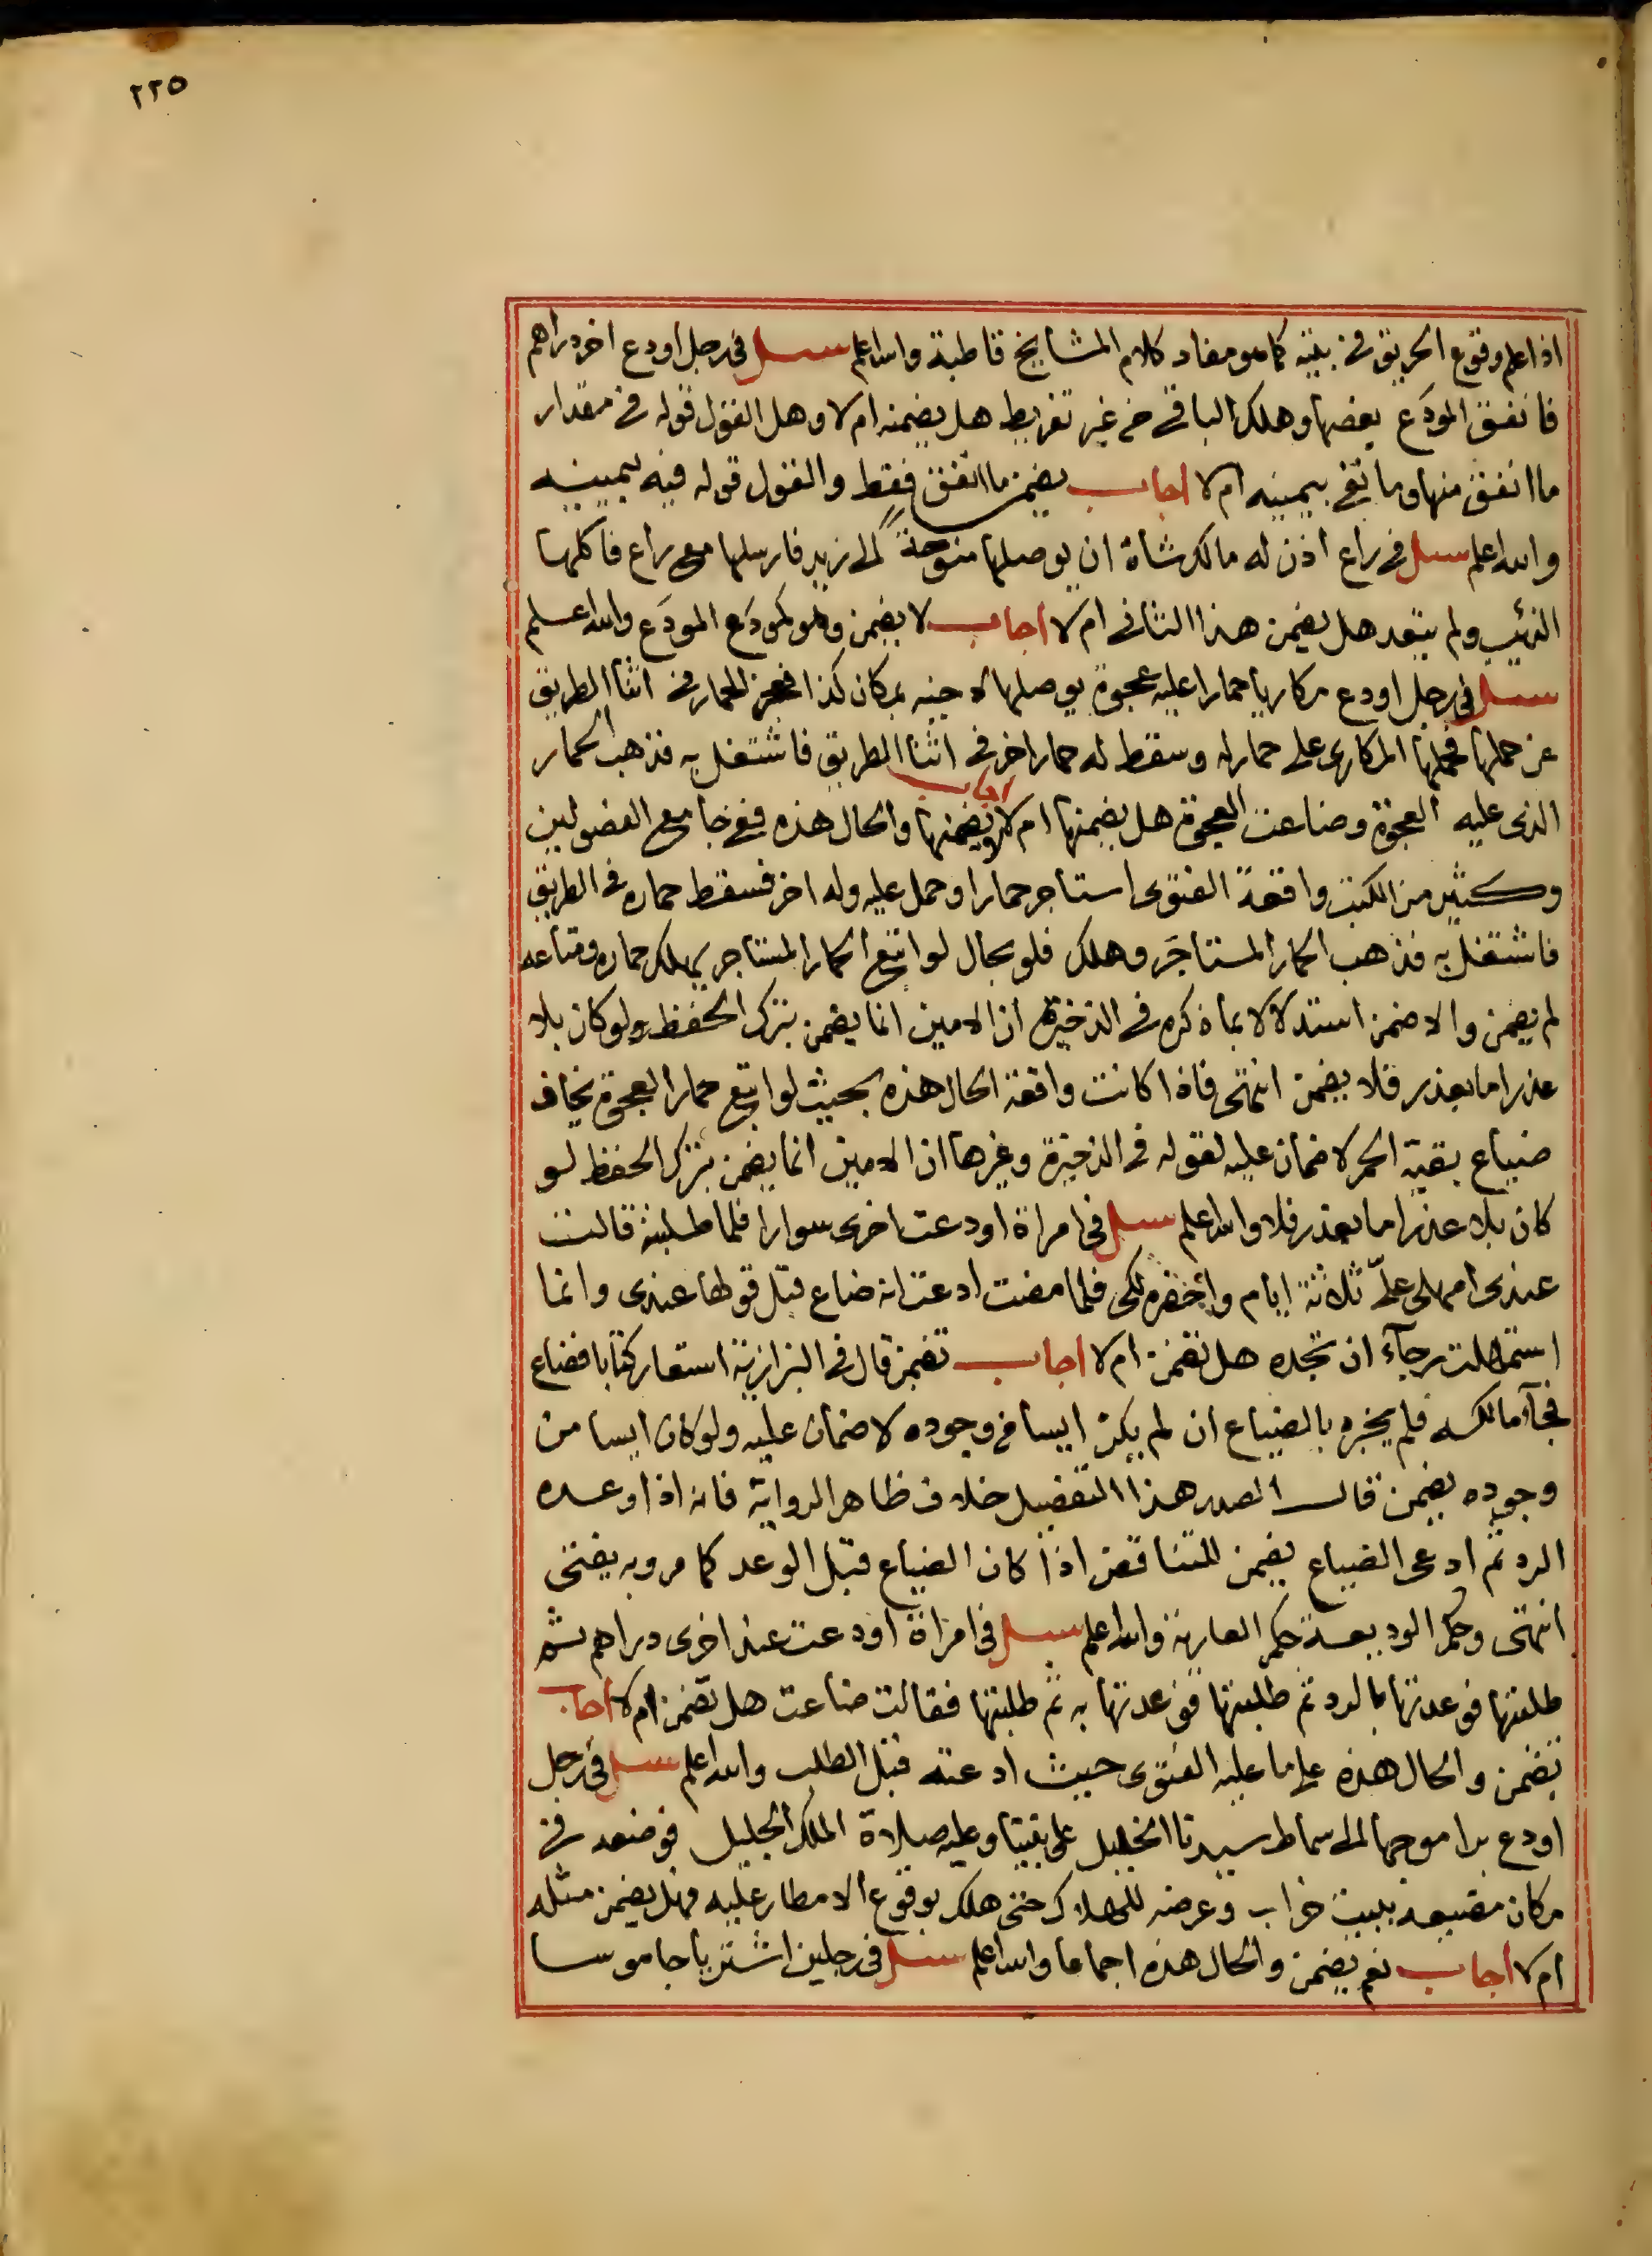 ٢٢٥
اذا علم وقوع الحريق في بيته كما هو مفاد كلام المشايخ قاطبة والله اعلم سئل في رجل اودع اخر دراهم
فانفق المودَع بعضها وهلك الباقي من غير تفريط هل يضمنه ام لا وهل القول قوله في مقدار
ما انفق منها وما بقي بيمينه ام لا اجاب يضمن ما انفق فقط والقول قوله فيه بيمينه
والله اعلم سئل في راع اذن له مالك شاة ان يوصلها الى زيد فارسلها مع راع فاكلها
الذئب ولم يتعد هل يضمن هذا الثاني ام لا اجاب لا يضمن وهو كمودَع المودَع والله اعلم
سئل في رجل اودع مكاريا حمارا عليه عجوة يوصلها لاجنبه بمكان كذا فعجز الحمار في اثنا الطريق
عن حملها فحملها المكاري على حمار له وسقط له حمار اخر في اثنا الطريق فاشتغل به فذهب الحمار
الذي عليه العجوة وضاعت العجوة هل يضمنها ام لا اجاب لا يضمنها والحال هذه ففي جامع الفصولين
وكثير من الكتب واقعة الفتوى استاجر حمارا وحمل عليه وله اخر فسقط حماره في الطريق
فاشتغل به فذهب الحمار المستاجَر وهلك فلو بحال لو اتبع الحمار المستاجر يهلك حماره ومتاعه
لم يضمن والا ضمن استدلالا بما ذكره في الذخيرة ان الامين انما يضمن بترك الحفظ ولو كان بلا
عذر اما بعذر فلا يضمن انتهى فاذا كانت واقعة الحال هذه بحيث لو اتبع حمار العجوة يخاف
ضياع بقية الحمر لا ضمان عليه لقوله في الذخيرة وغيرها ان الامين انما يضمن بترك الحفظ لو
كان بلا عذر اما بعذر فلا والله اعلم سئل في امراة اودعت اخرى سوارا فلما طلبته قالت
عندي امهلي علىّ ثلاثة ايام واحضره لكي فلما مضت ادعت انه ضاع قبل قولها عندي وانما
استمهلت رجآء ان تجده هل تضمن ام لا اجاب تضمن قال في البزازية استعار كتابا فضاع
فجآء مالكه فلم يخبره بالضياع ان لم يكن ايسا في وجوده لا ضمان عليه ولو كان ايسا من
وجوده يضمن قال الصدر هذا التفصيل خلاف ظاهر الرواية فانه اذا وعده
الرد ثم ادعى الضياع يضمن للتناقض اذا كان الضياع قبل الوعد كما مر وبه يفتى
انتهى وحكم الوديعة حكم العارية والله اعلم سئل في امراة اودعت عند اخرى دراهم ثم
طلبتها فوعدتها بالرد ثم طلبتها فوعدتها به ثم طلبتها فقالت ضاعت هل تضمن ام لا اجاب
تضمن والحال هذه على ما عليه الفتوى حيث ادعته قبل الطلب والله اعلم سئل في رجل
اودع برا موجها الى سماط سيدنا الخليل على نبينا وعليه صلاة الملك الجليل فوضعه في
مكان بيت خراب وعرضه للهلاك حتى هلك بوقوع الامطار عليه فهل يضمن مثله
ام لا اجاب نعم يضمن والحال هذه اجماعا والله اعلم سئل في رجلين اشتريا جاموسا